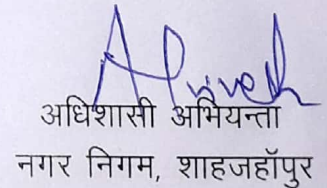 अधिशासी अभियन्ता
नगर निगम, शाहजहॉपुर